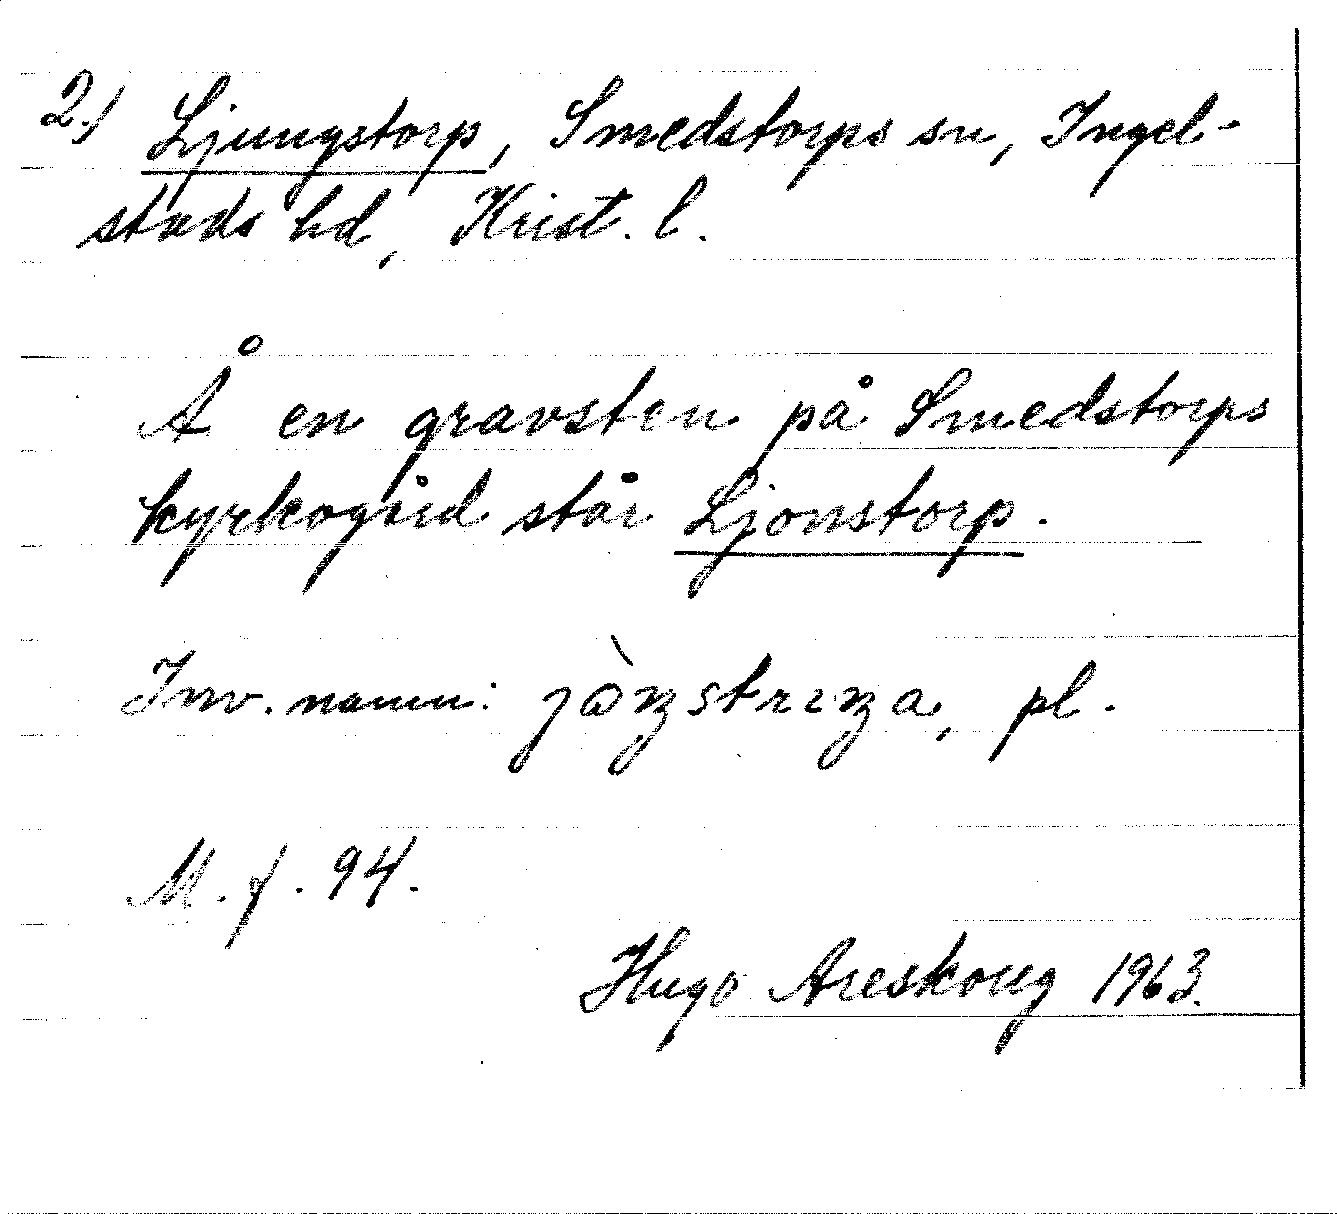 2.) Ljungstorp, Smedstorps sn, Ingel-
stads hd, Krist. l.
Å en gravsten på Smedstorps
kyrkogård står Ljonstorp.
Inv. namn: pl.
M. f. 94.
Hugo Areskoug 1963.